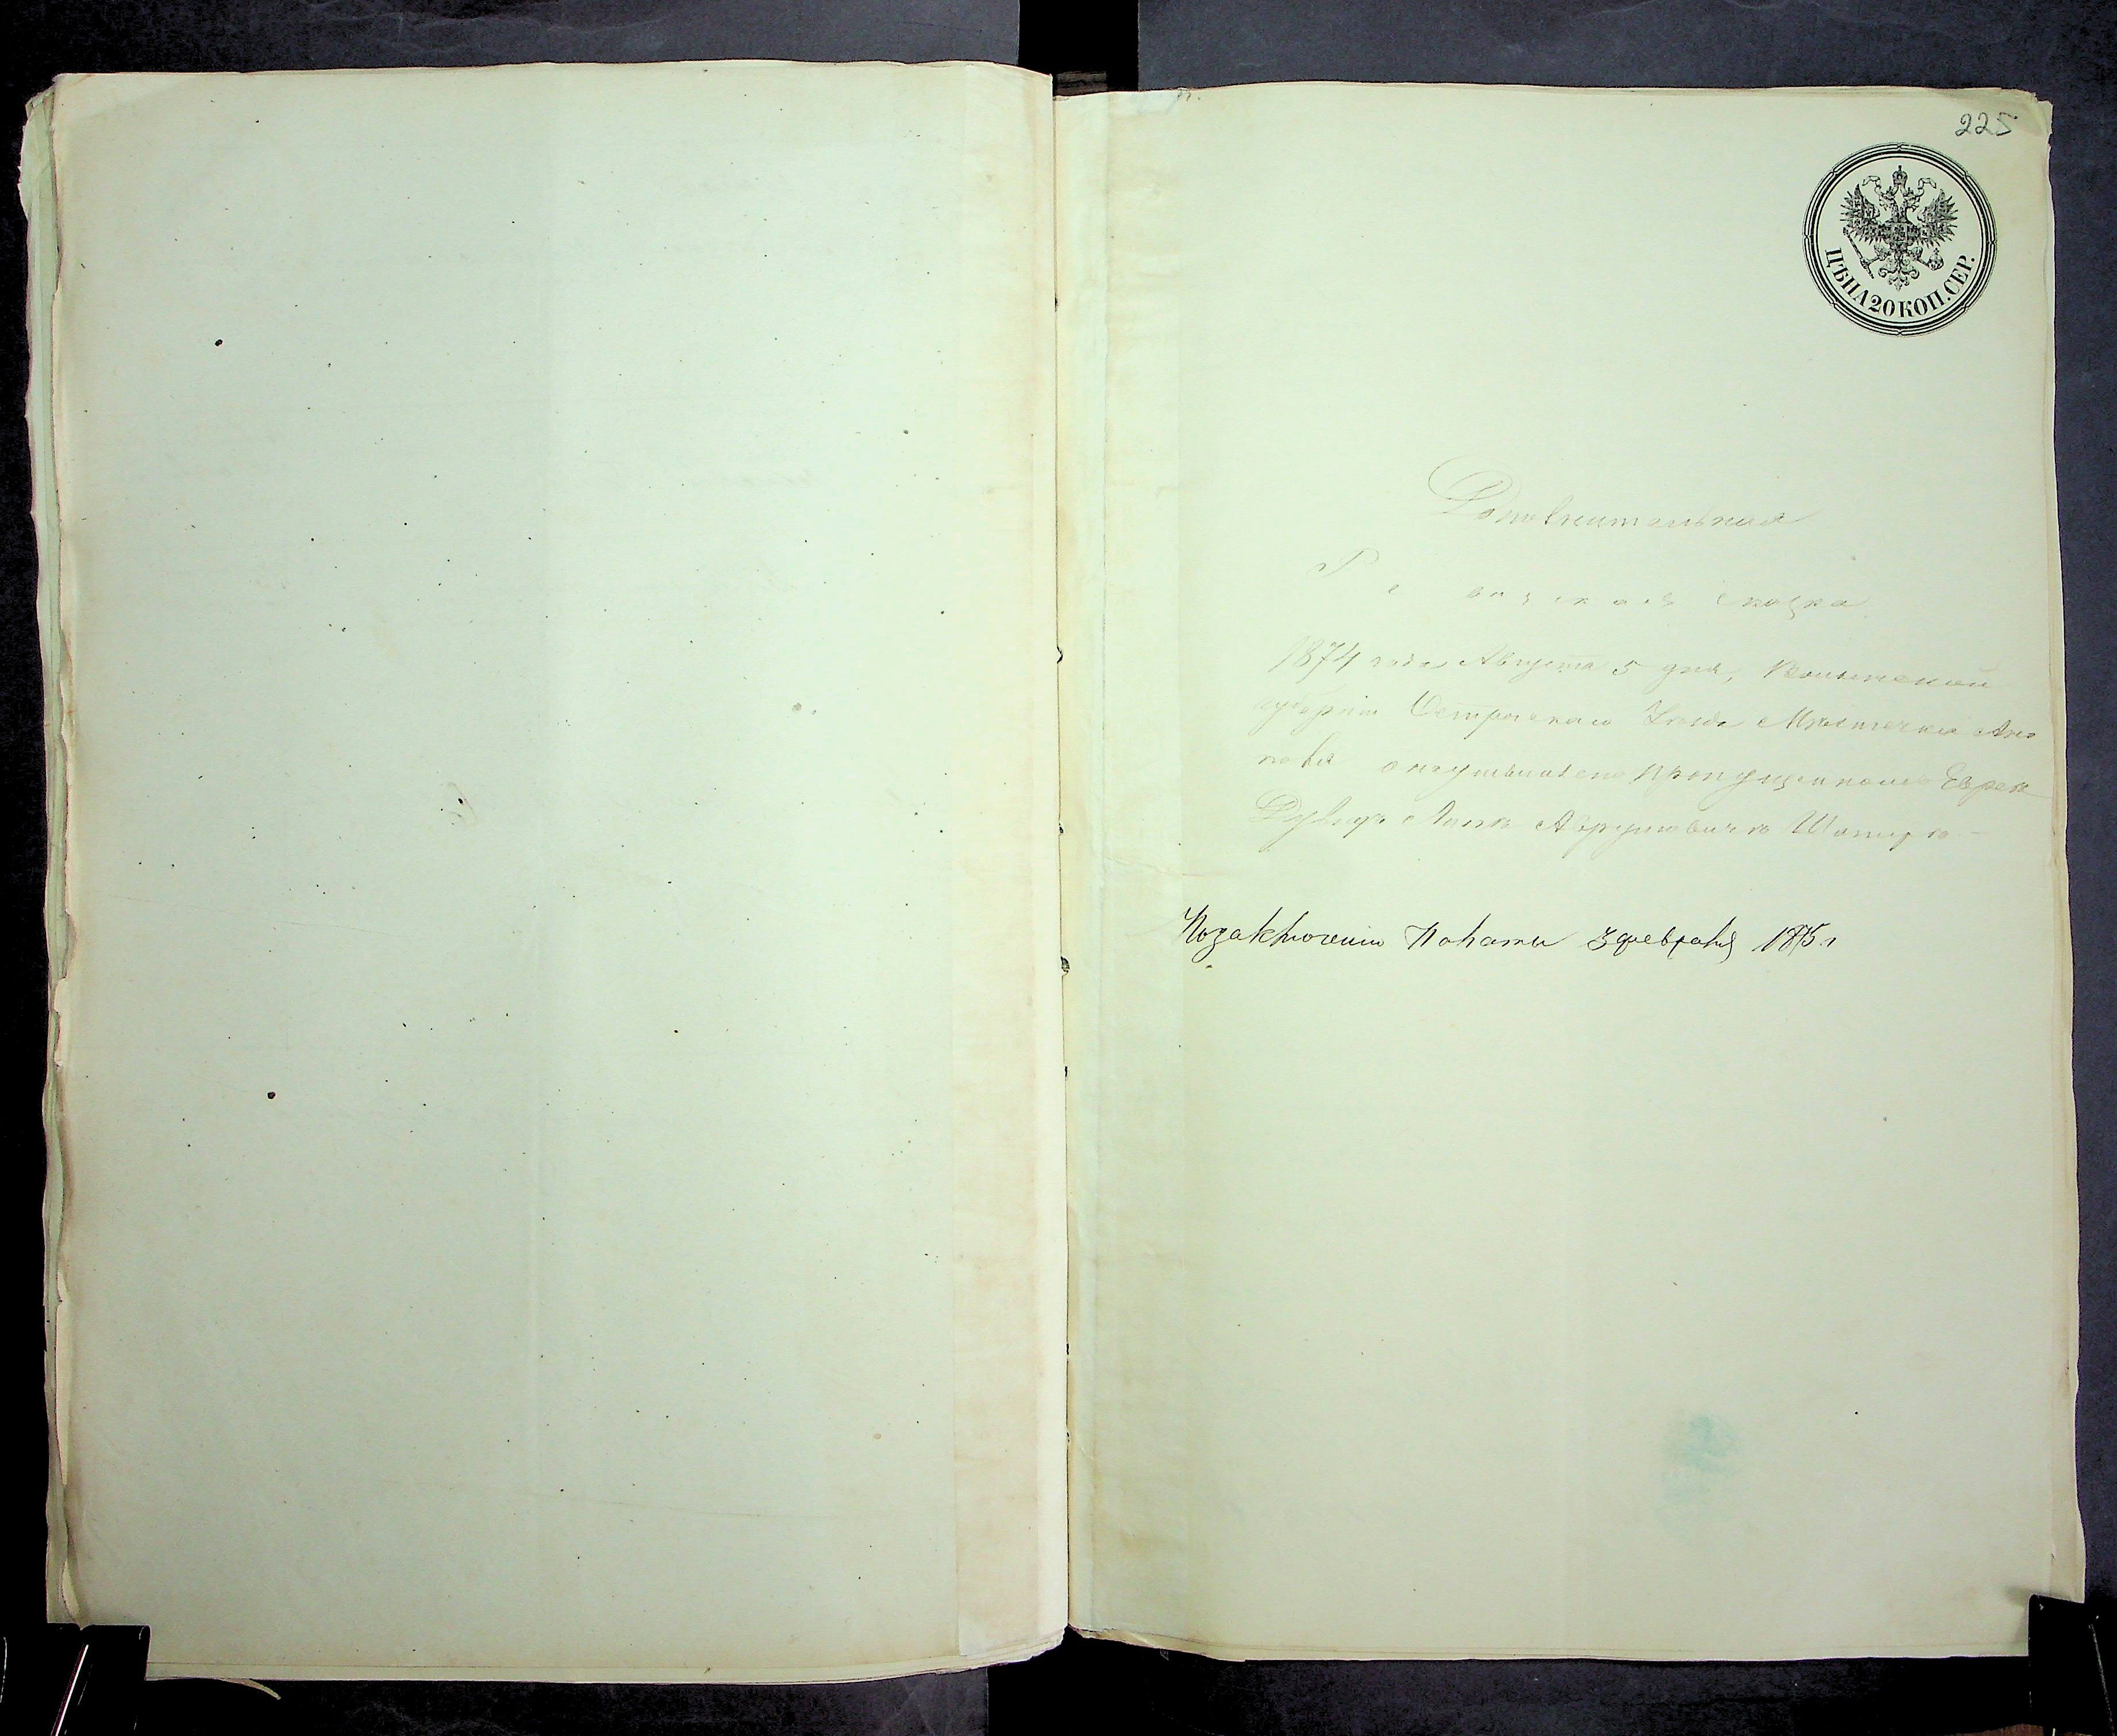 225
ЦѢНА 20 КОП. СЕР.
Дополнительная
Ревизская сказка
1874 года Августа 5 дня, Волынской
губернии Острогского Уѣзда Мѣстечка Анно
поля о пропущенномъ Евреѣ
Аврумовичѣ Шапирѣ
По заключению Палаты 3 февраля 1875 г